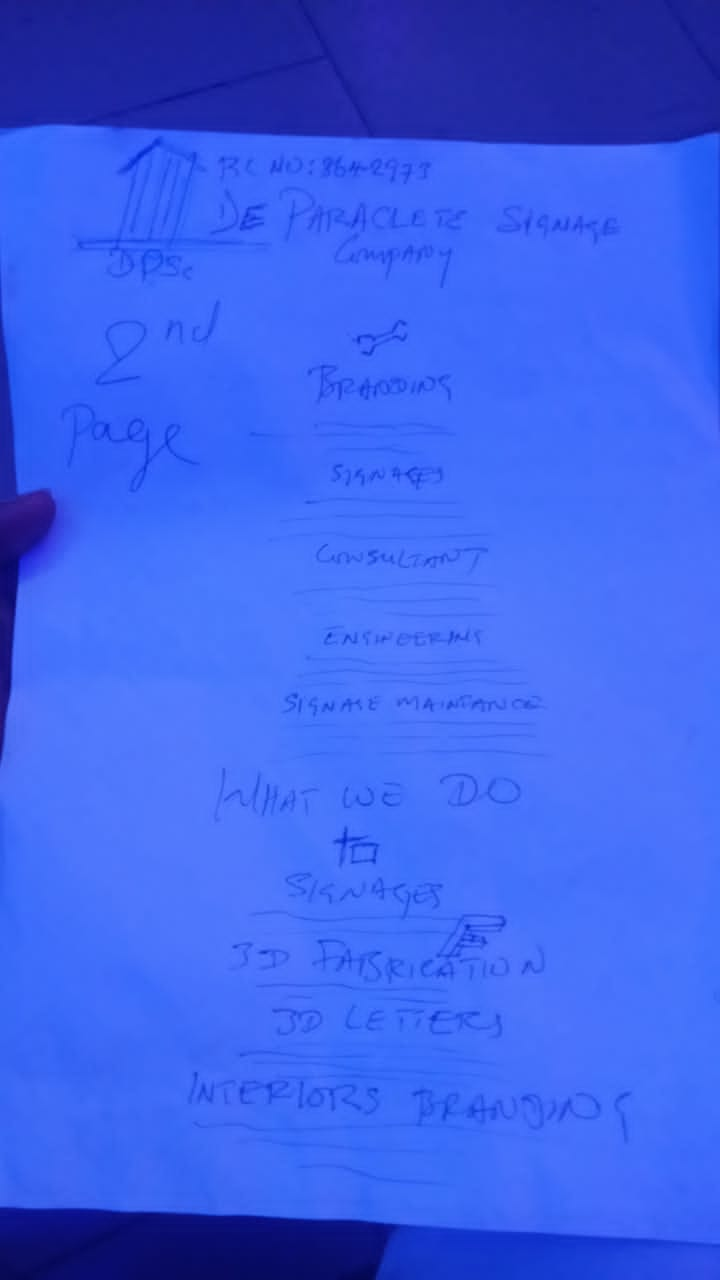 RC NO: 8642973
DE PARACLETE SIGNAGE
Company
DPSc
2nd
Page
BRANDING
SIGNAGES
CONSULTANT
ENGINEERING
SIGNAGE MAINTANCE
WHAT WE DO
SIGNAGES
3D FABRICATION
3D LETTERS
INTERIORS BRANDING